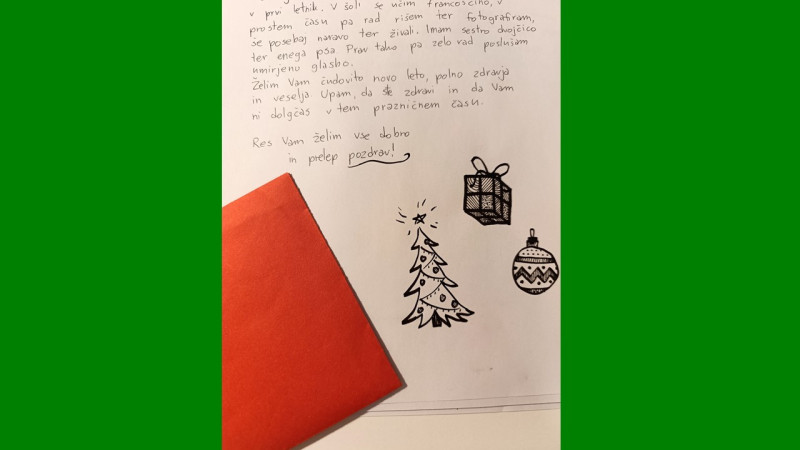 v prvi letnik. V šoli se učim francoščino, v
prostem času pa rad rišem ter fotografiram,
še posebaj naravo ter živali. Imam sestro dvojčico
ter enega psa. Prav tako pa zelo rad poslušam
umirjeno glasbo.
Želim Vam čudovito novo leto, polno zdravja
in veselja. Upam, da ste zdravi in da Vam
ni dolgčas v tem prazničnem času.
Res Vam želim vse dobro
in prelep pozdrav!